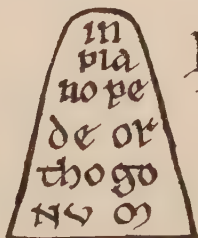 in
pla
no pe
de or
tho go
NV M